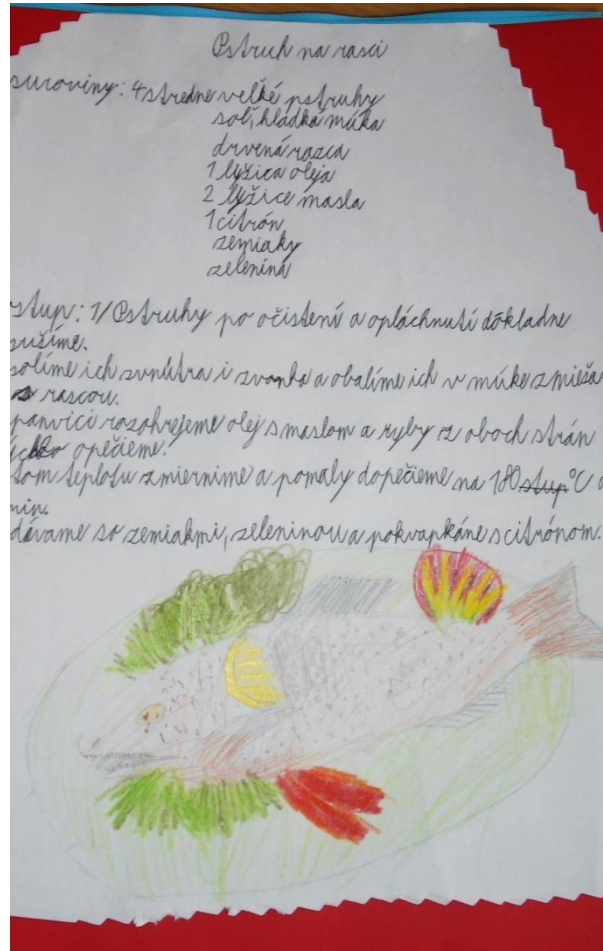 Pstruh na rasci
suroviny: 4 stredne veľké pstruhy
soľ, hladká múka
drvená razca
1 lyžica oleja
2 lyžice masla
1 citrón
zemiaky
zelenina
stup: 1/ Pstruhy po očistení a opláchnutí dôkladne
sušíme.
solíme ich zvnútra i zvonka a obalíme ich v múke zmieša
rascou.
panvici rozohrejeme olej s maslom a ryby z oboch strán
opečieme.
tom teplotu zmiernime a pomaly dopečieme na 180 stup °C
min.
dávame so zemiakmi, zeleninou a pokvapkáne s citrónom.